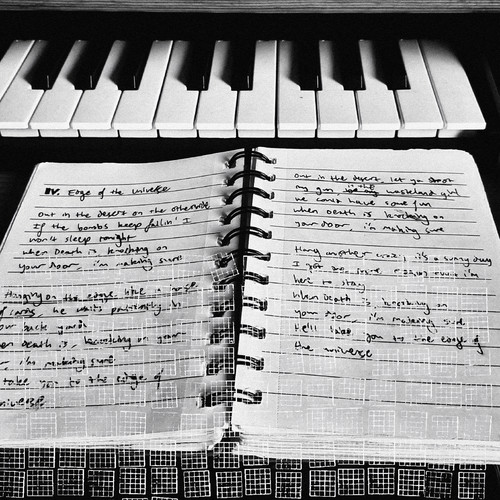 IV. Edge of the Universe
Out in the desert on the otherside
If the bombs keep fallin' I
won't sleep tonight
when Death is knocking on
your door, i'm making sure
Hanging on the edge like a
of cards, he waits patiently in
your back yards
en Death is knocking on your
, i'm making sure
take you to the edge of
universe
Out in the desert, let you shoot
my gun wasteland girl
we could have some fun
when Death is knocking on
your door, i'm making sure
Hang another it's a sunny day
I got i'm
here to stay
When Death is knocking on
your door, i'm making sure
He'll take you to the edge of
the universe